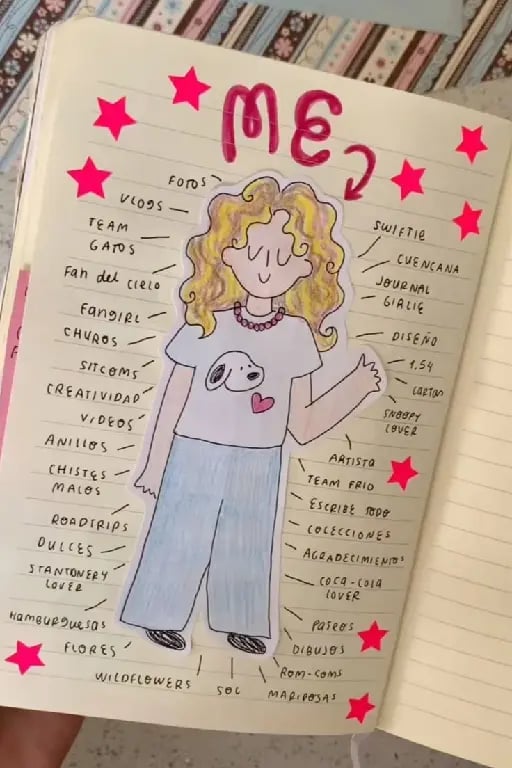 ME
FOTOS
VLOGS
TEAM
GATOS
Fan del cielo
FANGIRL
CHUROS
SITCOMS
CREATIVIDAD
VIDEOS
ANILLOS
CHISTES
MALOS
ROADTRIPS
DULCES
STANTONERY
LOVER
HAMBURGUESAS
FLORES
WILDFLOWERS
SOL
MARIPOSAS
ROM-COMS
DIBUJOS
PASEOS
COCA-COLA
LOVER
AGRADECIMIENTOS
COLECCIONES
ESCRIBE TODO
TEAM FRIO
ARTISTA
SNOOPY
LOVER
1.54
DISEÑO
JOURNAL
GIRLIE
CUENCANA
SWIFTIE